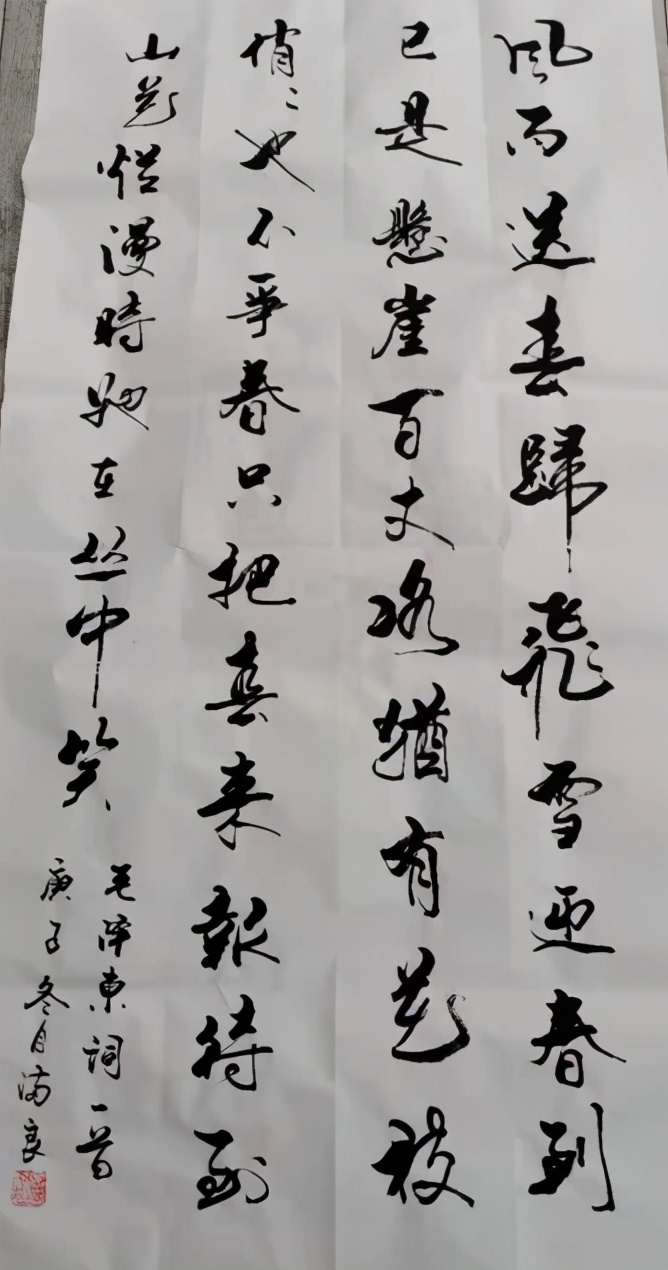 風雨送春歸飛雪迎春到
已是懸崖百丈冰猶有花枝
俏〻也不爭春只把春来報待到
山花烂漫時她在丛中笑
毛泽東詞一首
庚子冬月满良